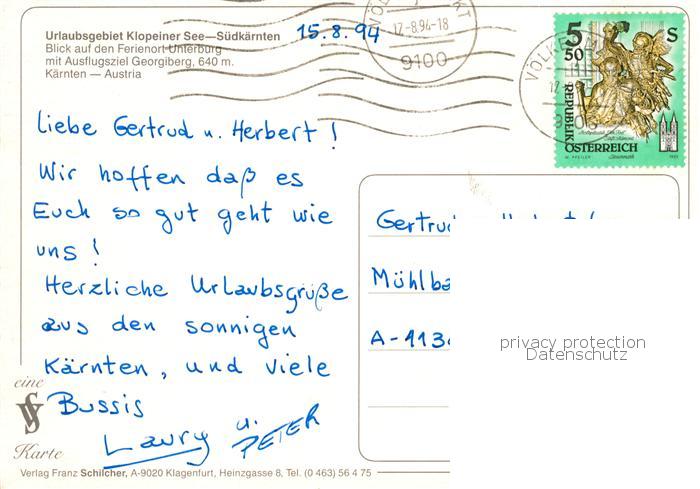 Urlaubsgebiet Klopeiner See—Südkärnten
Blick auf den Ferienort Unterburg
mit Ausflugsziel Georgiberg, 640 m.
Kärnten — Austria
15.8.94
17-8.94-18
9100
5 50 S
REPUBLIK
ÖSTERREICH
Liebe Gertrud u. Herbert!
Wir hoffen daß es
Euch so gut geht wie
uns!
Herzliche Urlaubsgrüße
aus den sonnigen
Kärnten, und viele
Bussis
Laury u.
PETER
Gertrud
Mühlba
A-113
privacy protection
Datenschutz
eine
Karte
Verlag Franz Schilcher, A-9020 Klagenfurt, Heinzgasse 8, Tel. (0 463) 56 4 75